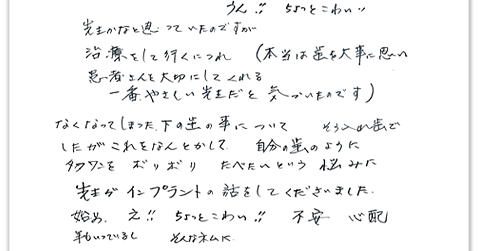 うん!! ちょっとこわい!!
先生かなと思っていたのですが
治療をして行くにつれ (本当は歯を大事に思い
患者さんを大切にしてくれる
一番やさしい先生だと 気づいたのです)
なくなってしまった下の歯の事について そう入れ歯で
したがこれをなんとかして 自分の歯のように
タクワンを ボリボリ たべたいという 悩みに
先生が インプラントの話をしてくださいました.
始め. え!! ちょっとこわい!! 不安 心配
年もいっているし そんなネムに